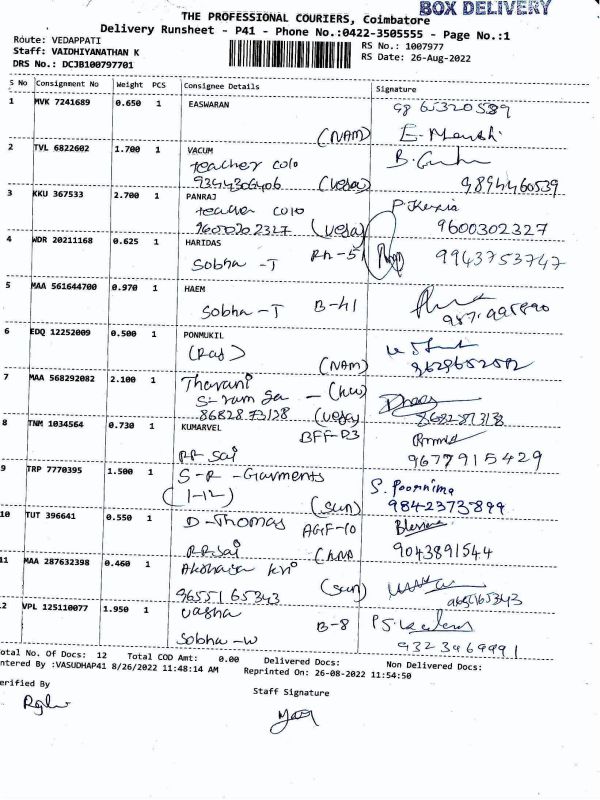 BOX DELIVERY
THE PROFESSIONAL COURIERS, Coimbatore
Delivery Runsheet - P41 - Phone No.:0422-3505555 - Page No.:1
Route: VEDAPPATI
RS No.: 1007977
Staff: VAIDHIYANATHAN K
RS Date: 26-Aug-2022
DRS No.: DCJB100797701
S No Consignment No Weight PCS Consignee Details Signature
1 MVK 7241689 0.650 1 EASWARAN
98 65320589
(NAM)
2 TVL 6822602 1.700 1 VACUM
teacher colo
(Veda) 9894460539
3 KKU 367533 2.700 1 PANRAJ
teacher colo
(Veda) 9600302327
4 WDR 20211168 0.625 1 HARIDAS
Sobha -T 9943753747
5 MAA 561644700 0.970 1 HAEM
Sobha -T B-41
6 EDQ 12252009 0.500 1 PONMUKIL
(Raj)
(NAM)
7 MAA 568292082 2.100 1 Tharani
86828 73128 (Veda)
8 TNM 1034564 0.730 1 KUMARVEL
BFF-D3
RR Sai 9677915429
9 TRP 7770395 1.500 1 S-R-Garments
S. Poornima
(1-12) (sun) 9842373899
10 TUT 396641 0.550 1 D-Thomas
AGIF-10
RR Sai 9043891544
11 MAA 287632398 0.460 1
96551 65343 (sun)
12 VPL 125110077 1.950 1
B-8
Sobha -W
Total No. Of Docs: 12 Total COD Amt: 0.00 Delivered Docs: Non Delivered Docs:
Entered By :VASUDHAP41 8/26/2022 11:48:14 AM Reprinted On: 26-08-2022 11:54:50
Verified By
Staff Signature